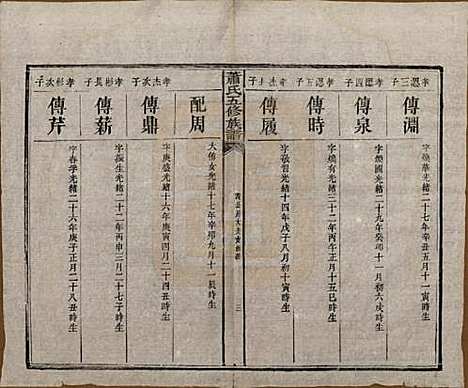 孝恩三子
傳淵
字煥華光緒二十七年辛丑五月十一寅時生
孝恩四子
傳泉
字煥國光緒二十九年癸卯十一月初六戌時生
孝恩五子
傳時
孝杰長子
傳履
光緒十四年戊子八月初十寅時生
蕭氏五修族譜
三
配周
大傳女光緒十七年辛卯九月十一辰時生
孝杰次子
傳鼎
字庚盛光緒十六年庚寅四月二十四丑時生
孝彬長子
傳薪
字振生光緒二十二年丙申三月二十七子時生
孝彬次子
傳芹
字春學光緒二十六年庚子正月二十八丑時生